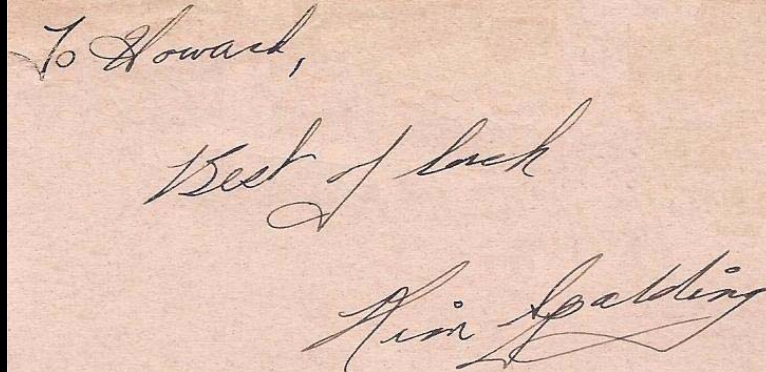 To Howard,
Best of luck
Kim Spalding